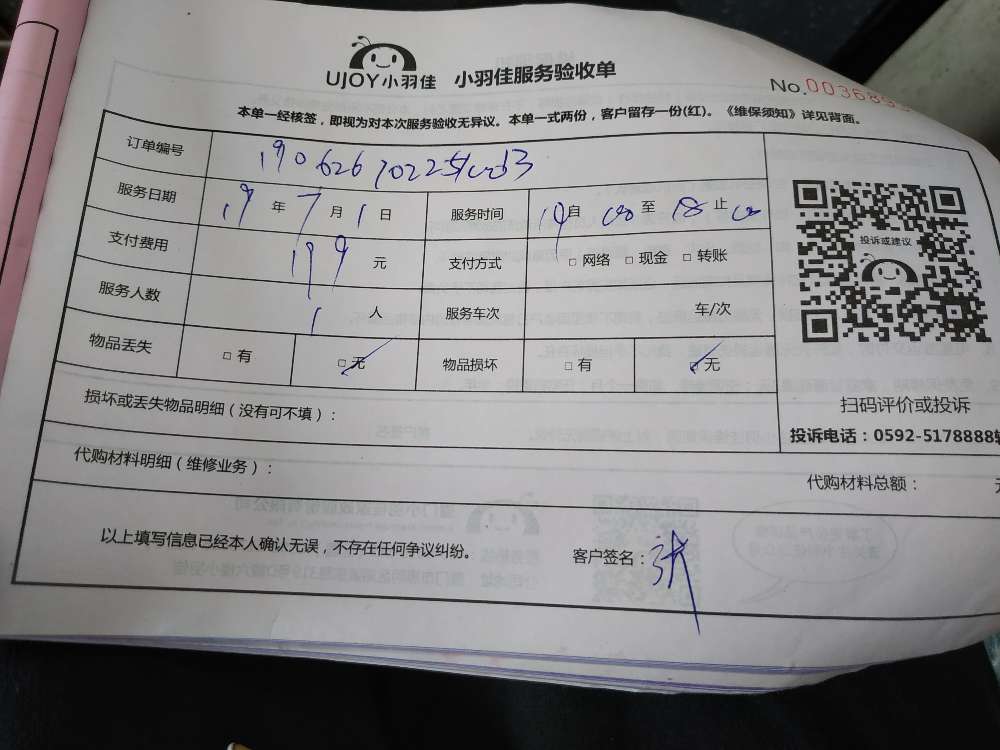 UJOY小羽佳 小羽佳服务验收单
No.003689
本单一经核签，即视为对本次服务验收无异议。本单一式两份，客户留存一份(红)。《维保须知》详见背面。
订单编号
服务日期 19年7月1日 服务时间 14自00至18止00
支付费用 199元 支付方式 □网络 □现金 □转账
服务人数 1人 服务车次 车/次
物品丢失 □有 □无 物品损坏 □有 □无
损坏或丢失物品明细（没有可不填）：
投诉或建议
扫码评价或投诉
投诉电话：0592-5178888转
代购材料明细（维修业务）： 代购材料总额：
以上填写信息已经本人确认无误，不存在任何争议纠纷。 客户签名：张